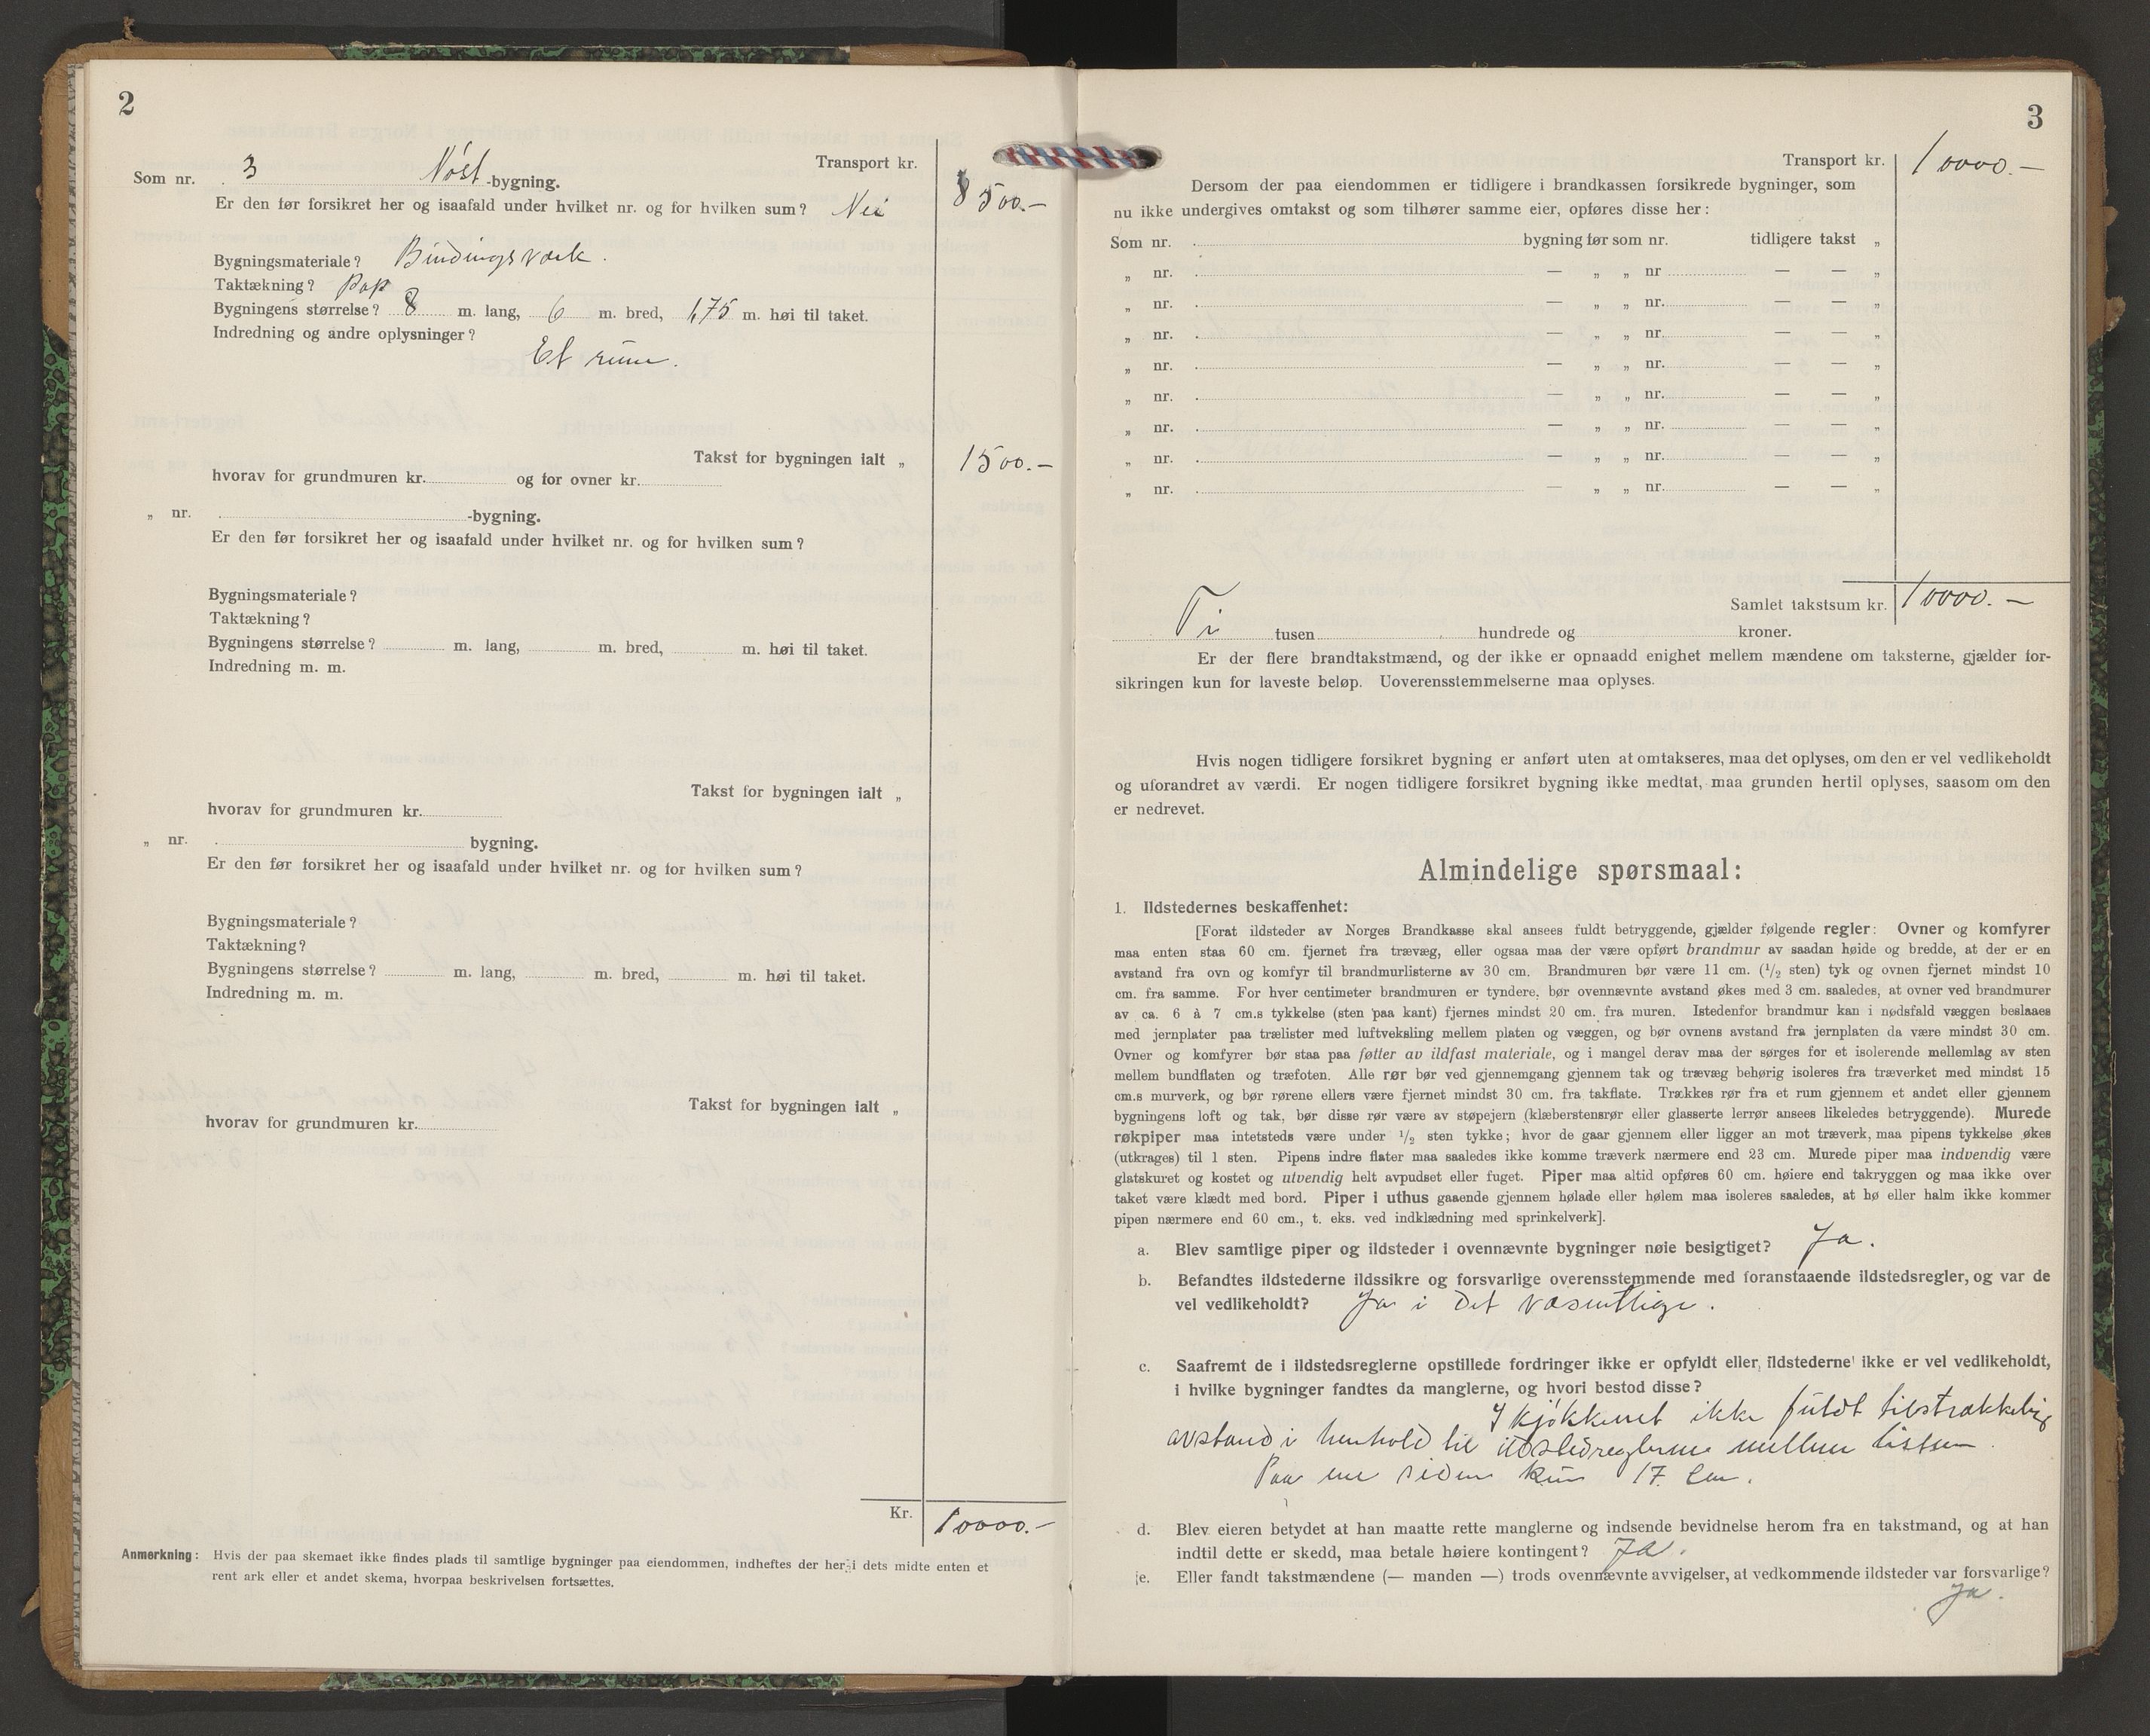 2
Transport kr.
Som nr. 3 Nøst -bygning. 8500.-
Er den før forsikret her og isaafald under hvilket nr. og for hvilken sum? Nei
Bygningsmateriale? Bindingsværk.
Taktækning? Pap
Bygningens størrelse? 8 m. lang, 6 m. bred, 1,75 m. høi til taket.
Indredning og andre oplysninger?
Et rum.
Takst for bygningen ialt „ 1500.-
hvorav for grundmuren kr. og for ovner kr.
„ nr. -bygning.
Er den før forsikret her og isaafald under hvilket nr. og for hvilken sum?
Bygningsmateriale?
Taktækning?
Bygningens størrelse? m. lang, m. bred, m. høi til taket.
Indredning m. m.
Takst for bygningen ialt „
hvorav for grundmuren kr.
„ nr. bygning.
Er den før forsikret her og isaafald under hvilket nr. og for hvilken sum?
Bygningsmateriale?
Taktækning?
Bygningens størrelse? m. lang, m. bred, m. høi til taket.
Indredning m. m.
Takst for bygningen ialt „
hvorav for grundmuren kr.
Kr. 10000.-
Anmerkning: Hvis der paa skemaet ikke findes plads til samtlige bygninger paa eiendommen, indheftes der her i dets midte enten et
rent ark eller et andet skema, hvorpaa beskrivelsen fortsættes.
3
Transport kr. 10000.-
Dersom der paa eiendommen er tidligere i brandkassen forsikrede bygninger, som
nu ikke undergives omtakst og som tilhører samme eier, opføres disse her:
Som nr. bygning før som nr. tidligere takst „
„ nr. — „ „ nr — — „
„ nr. — „ „ nr. — — „
„ nr. — „ „ nr. — — „
„ nr. — „ „ nr. — — „
„ nr. — „ „ nr. — — „
„ nr. — „ „ nr. — — „
„ nr. — „ „ nr. — — „
„ nr. — „ „ nr. — — „
Samlet takstsum kr. 10000.-
Ti tusen hundrede og kroner.
Er der flere brandtakstmænd, og der ikke er opnaadd enighet mellem mændene om taksterne, gjælder for-
sikringen kun for laveste beløp. Uoverensstemmelserne maa oplyses.
Hvis nogen tidligere forsikret bygning er anført uten at omtakseres, maa det oplyses, om den er vel vedlikeholdt
og uforandret av værdi. Er nogen tidligere forsikret bygning ikke medtat, maa grunden hertil oplyses, saasom om den
er nedrevet.
Almindelige spørsmaal:
1. Ildstedernes beskaffenhet:
[Forat ildsteder av Norges Brandkasse skal ansees fuldt betryggende, gjælder følgende regler: Ovner og komfyrer
maa enten staa 60 cm. fjernet fra trævæg, eller ogsaa maa der være opført brandmur av saadan høide og bredde, at der er en
avstand fra ovn og komfyr til brandmurlisterne av 30 cm. Brandmuren bør være 11 cm. (1/2 sten) tyk og ovnen fjernet mindst 10
cm. fra samme. For hver centimeter brandmuren er tyndere, bør ovennævnte avstand økes med 3 cm. saaledes, at ovner ved brandmurer
av ca. 6 à 7 cm.s tykkelse (sten paa kant) fjernes mindst 20 cm. fra muren. Istedenfor brandmur kan i nødsfald væggen beslaaes
med jernplater paa trælister med luftveksling mellem platen og væggen, og bør ovnens avstand fra jernplaten da være mindst 30 cm.
Ovner og komfyrer bør staa paa føtter av ildfast materiale, og i mangel derav maa der sørges for et isolerende mellemlag av sten
mellem bundflaten og træfoten. Alle rør bør ved gjennemgang gjennem tak og trævæg behørig isoleres fra træverket med mindst 15
cm.s murverk, og bør rørene ellers være fjernet mindst 30 cm. fra takflate. Trækkes rør fra et rum gjennem et andet eller gjennem
bygningens loft og tak, bør disse rør være av støpejern (klæberstensrør eller glasserte lerrør ansees likeledes betryggende). Murede
røkpiper maa intetsteds være under 1/2 sten tykke; hvor de gaar gjennem eller ligger an mot træverk, maa pipens tykkelse økes
(utkrages) til 1 sten. Pipens indre flater maa saaledes ikke komme træverk nærmere end 23 cm. Murede piper maa indvendig være
glatskuret og kostet og utvendig helt avpudset eller fuget. Piper maa altid opføres 60 cm. høiere end takryggen og maa ikke over
taket være klædt med bord. Piper i uthus gaaende gjennem hølade eller hølem maa isoleres saaledes, at hø eller halm ikke kommer
pipen nærmere end 60 cm., t. eks. ved indklædning med sprinkelverk].
a. Blev samtlige piper og ildsteder i ovennævnte bygninger nøie besigtiget? Ja.
b. Befandtes ildstederne ildssikre og forsvarlige overensstemmende med foranstaaende ildstedsregler, og var de
vel vedlikeholdt? Ja i det væsentlige.
c. Saafremt de i ildstedsreglerne opstillede fordringer ikke er opfyldt eller ildstederne ikke er vel vedlikeholdt,
i hvilke bygninger fandtes da manglerne, og hvori bestod disse?
I kjøkkenet ikke fuldt tilstrækkelig
avstand i henhold til ildstedreglerne mellem listen.
Paa ene siden kun 17 cm.
d. Blev eieren betydet at han maatte rette manglerne og indsende bevidnelse herom fra en takstmand, og at han
indtil dette er skedd, maa betale høiere kontingent? Ja.
e. Eller fandt takstmændene (— manden —) trods ovennævnte avvigelser, at vedkommende ildsteder var forsvarlige?
Ja.